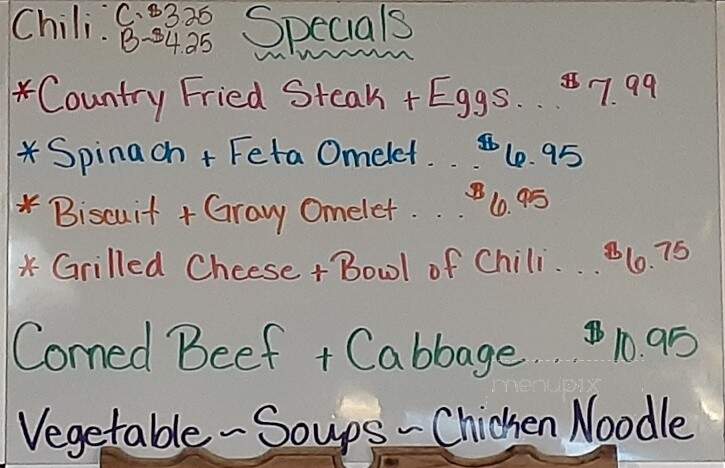 Chili: C-$3.25
B-$4.25
Specials
*Country Fried Steak + Eggs...$7.99
*Spinach + Feta Omelet...$6.95
*Biscuit + Gravy Omelet...$6.95
*Grilled Cheese + Bowl of Chili...$6.75
Corned Beef + Cabbage....$10.95
menupix
Vegetable ~ Soups ~ Chicken Noodle